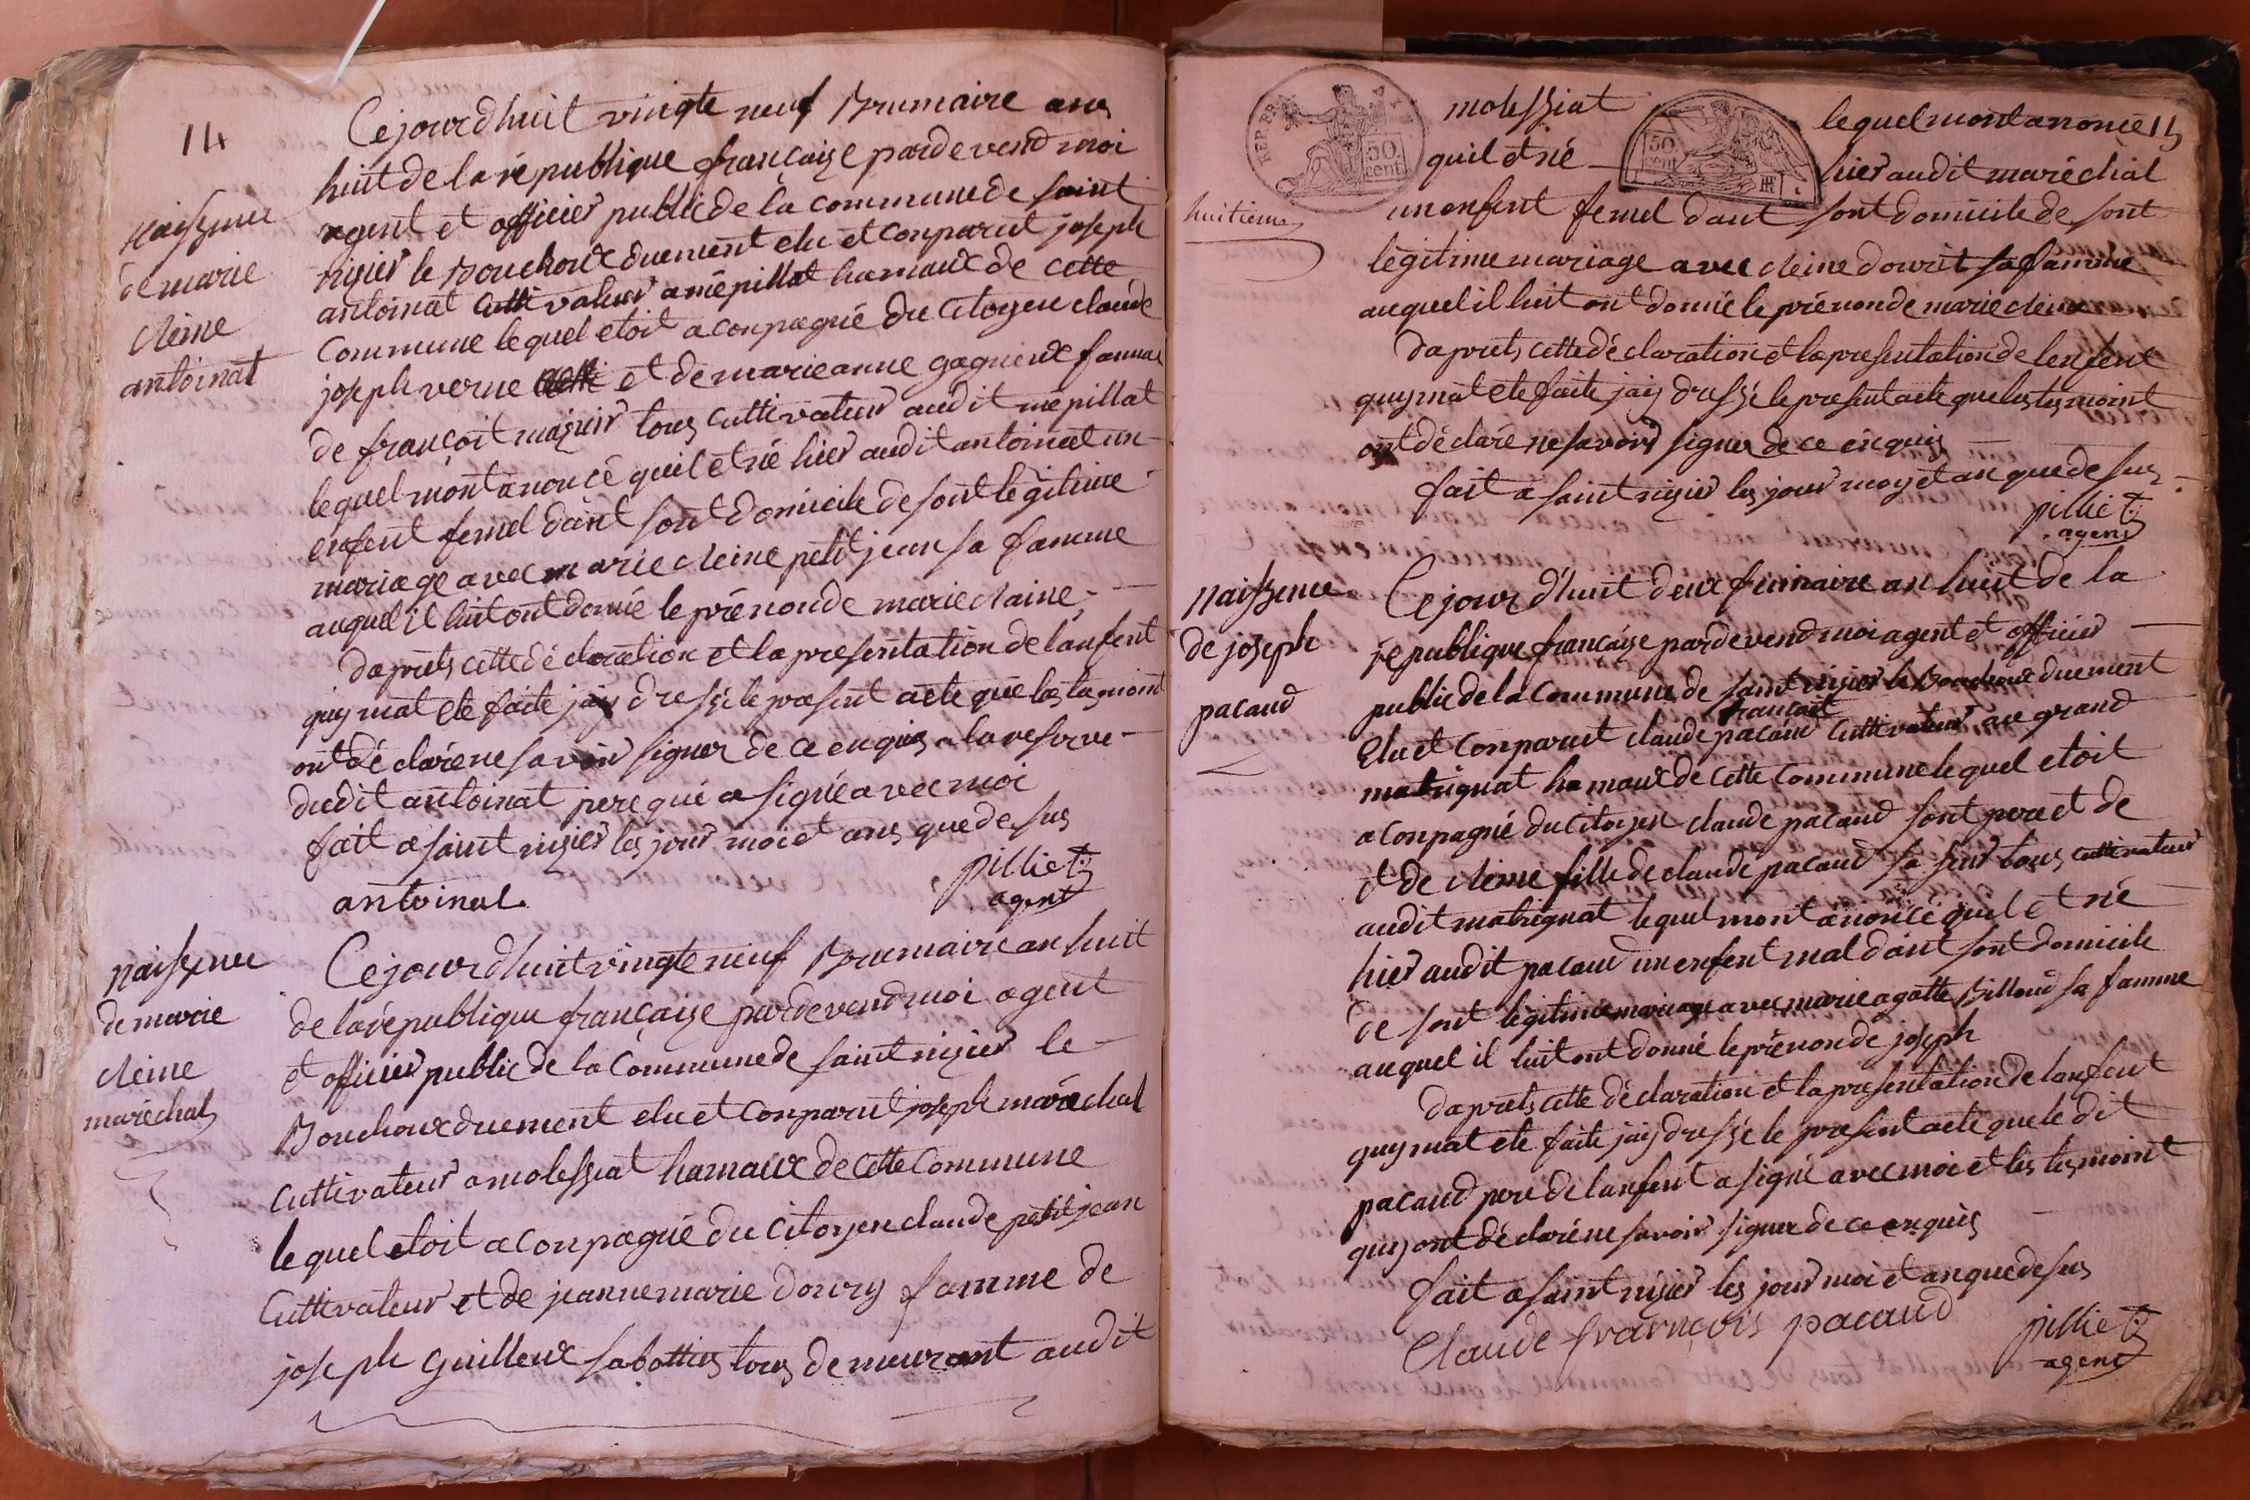 14
Naissence
de marie
cleine
antoinat
Ce jourd huit vingte neuf Brumaire ans
huit de la république francaise pardevend moi
agent et officier public de la commune de saint
nisier le Bouchoux duement elu et conparut joseph
antoinat cultivateur a mépillat hamaux de cette
commune lequel etoit aconpagné du citoyen claude
joseph verne et de marie anne gagneux famme
de françoit mazuir tous cultivateur audit mepillat
lequel mont anoncé quil et né hier audit antoinat un
enfent femel dant sont domicile de sont legitime
mariage avec marie cleine petit jean sa famme
auquel il luit ont donné le prénon de marie claine
daprets cette déclaration et la presentation de lanfent
quy mat ete faite jay dressé le present acte que les tesmoint
ont déclaré ne savoir signer de ce enquis a la reserve
dudit antoinat pere qui a signé avec moi
fait a saint nisier les jour moi et ans que desus
antoinat
pilliet
agent
Naissence
de marie
cleine
maréchal
Ce jourd huit vingte neuf Brumaire an huit
de la république francaise pardevend moi agent
et officier public de la commune de saint nisier le
Bouchoux duement elu et conparut joseph maréchal
cultivateur a molessiat hamaux de cette commune
lequel etoit aconpagné du citoyen claude petit jean
cultivateur et de jeanne marie dowry famme de
joseph guilleux sabottier tous demeurant audit
REP. FRA.
50
cent
50
cent
molessiat lequel mont anoncé 15
quil et né hier audit maréchal
huitieme
un enfent femel dant sont domicile de sont
légitime mariage avec cleine dowrit sa famme
auquel il luit ont donné le prénon de marie cleine
daprets cette déclaration et la presentation de lenfent
quy mat ete faite jay dressé le present acte que les tesmoint
ont déclaré ne savoir signer de ce enquis
fait a saint nisier les jour moy et an que desus
pilliet
agent
Naissence
de joseph
pacaud
Ce jour d'huit deux frimaire an huit de la
république française pardevend moi agent et officier
public de la commune de saint nisier le Bouchoux duement
elu et conparut claude françoit pacaud cultivateur au grand
matrignat hamaux de cette commune lequel etoit
aconpagné du citoyen claude pacaud sont pere et de
et de cleine fille de claude pacaud sa seur tous cultivateur
audit matrignat lequel mont anoncé quil et né
hier audit pacaud un enfent mal dant sont domicile
de sont legitime mariage avec marie agatte Billoud sa famme
auquel il luit ont donné le prénon de joseph
daprets cette déclaration et la présentation de lanfent
quy mat ete faite jay dressé le present acte que le dit
pacaud pere de lanfent a signé avec moi et les tesmoint
quy ont déclaré ne savoir signer de ce enquis
fait a saint nisier les jour moi et an que desus
Claude françois pacaud
pilliet
agent